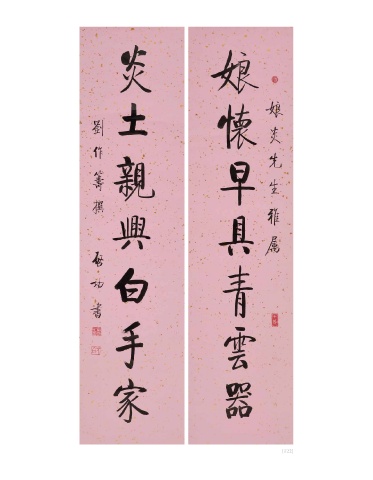 娘炎先生雅属
娘懷早具青雲器
炎土親興白手家
劉作籌撰
啟功書